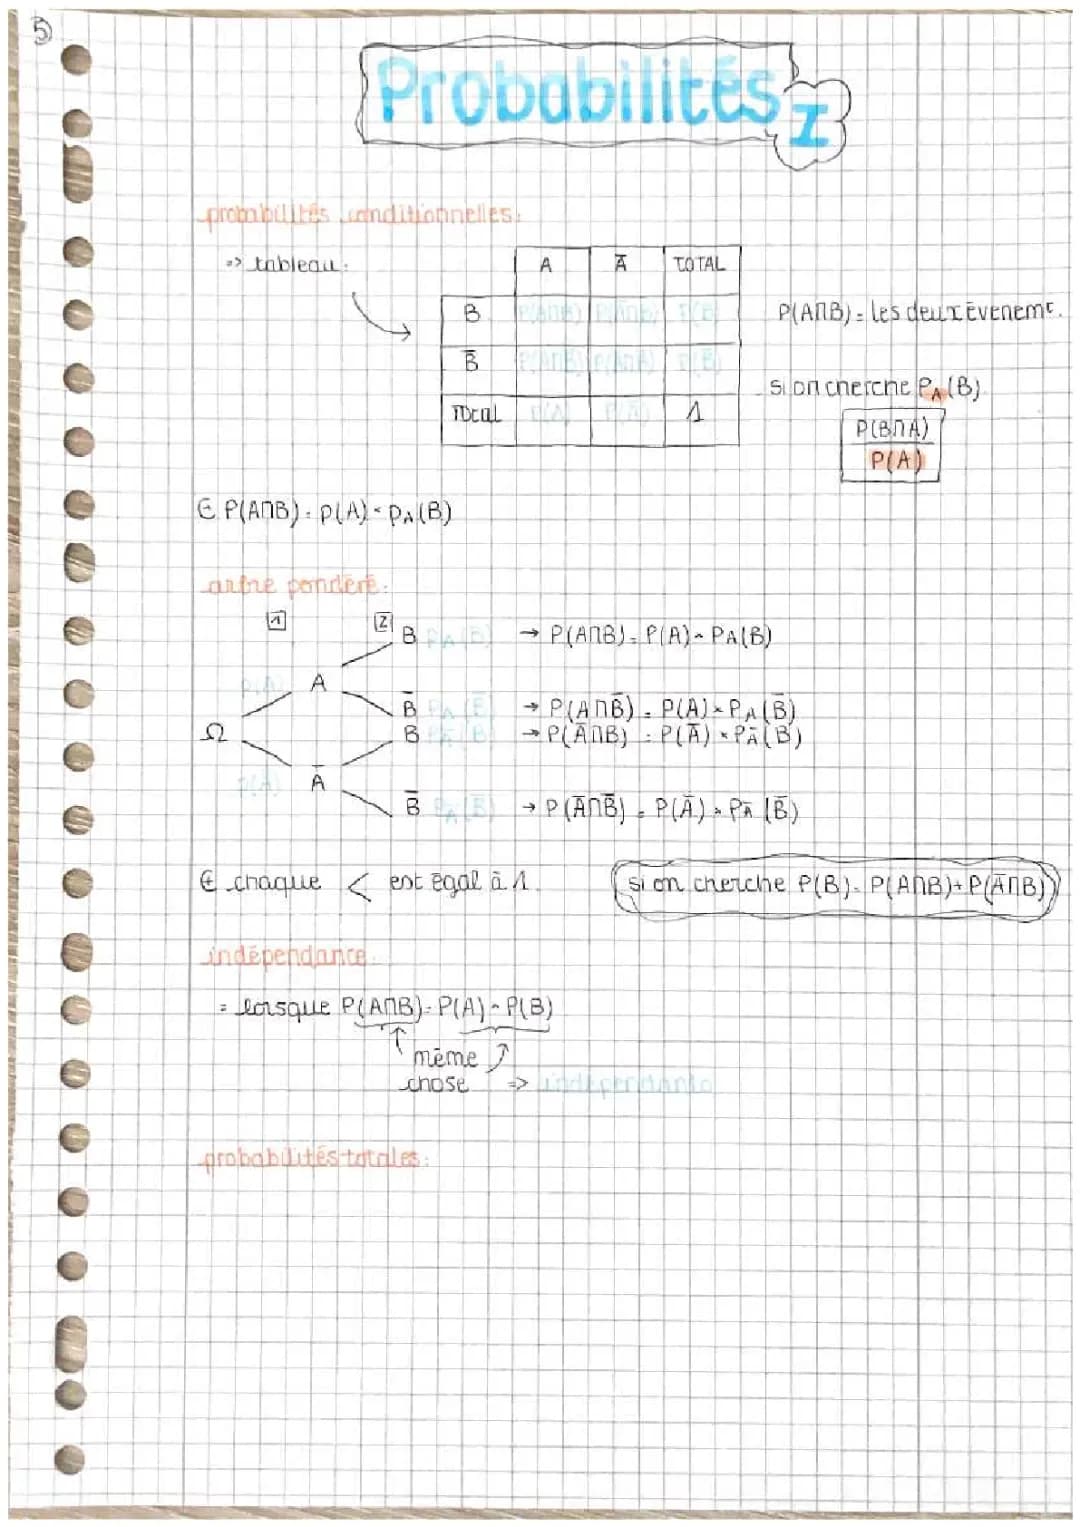 5
Probabilités I
probabilités conditionnelles:
=> tableau:
A Ā TOTAL
B P(A∩B) P(Ā∩B) P(B)
P(A∩B) = les deux évènemt.
B̄ P(A∩B̄) P(Ā∩B̄) P(B̄)
Total P(A) P(Ā) 1
si on cherche P_A(B)
P(B∩A)
P(A)
∈ P(A∩B) = P(A) × P_A(B)
arbre pondéré:
1 2
B P_A(B) → P(A∩B) = P(A) × P_A(B)
P(A) A
B̄ P_A(B̄) → P(A∩B̄) = P(A) × P_A(B̄)
Ω B P_Ā(B) → P(Ā∩B) = P(Ā) × P_Ā(B)
P(Ā) Ā
B̄ P_Ā(B̄) → P(Ā∩B̄) = P(Ā) × P_Ā(B̄)
∈ chaque < est égal à 1.
si on cherche P(B) = P(A∩B) + P(Ā∩B)
indépendance:
= lorsque P(A∩B) = P(A) × P(B)
même
chose => indépendants
probabilités totales: